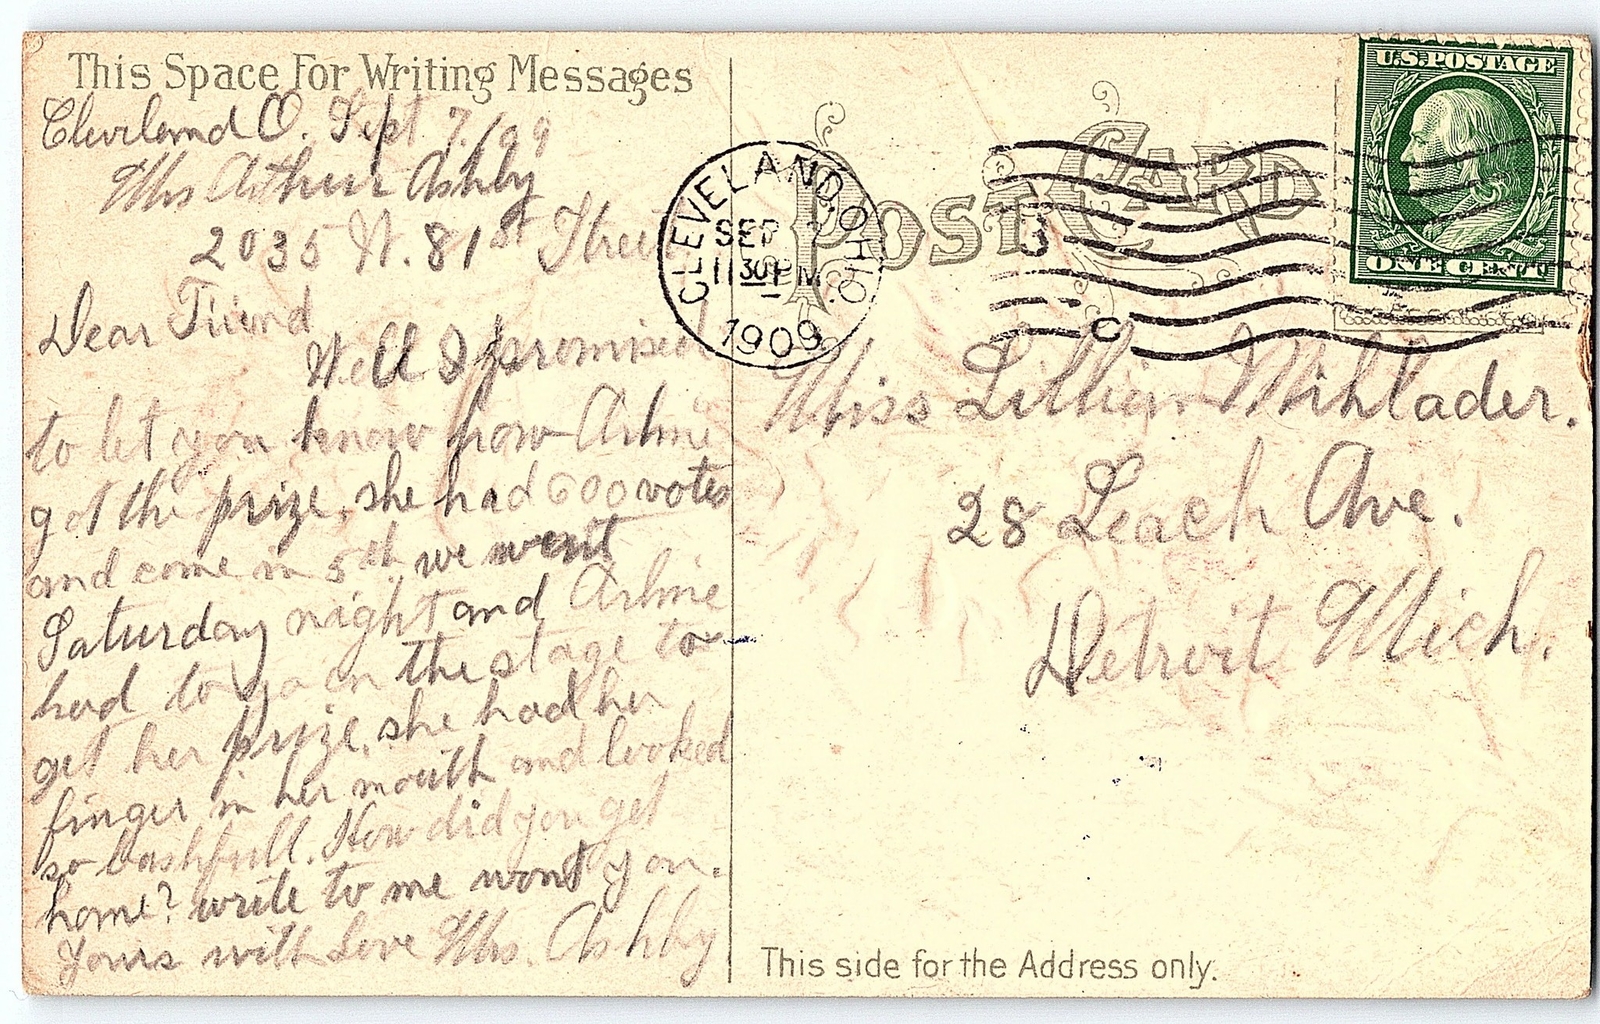 This Space For Writing Messages
Cleveland O. Sept 7/09
Mrs Arthur Ashby
2035 W. 81st Street
Dear Friend
Well I promised
to let you know how Arline
got the prize, she had 600 votes
and come in 5th we went
Saturday night and Arline
had to go on the stage to
get her prize, she had her
finger in her mouth and looked
so bashfull. How did you get
home? write to me wont you.
Yours with Love Mrs. Ashby
POST CARD
CLEVELAND, OHIO
SEP 7
11 30 PM
1909
C
U.S. POSTAGE
ONE CENT
Miss Lillian Mihlader.
28 Leach Ave.
Detroit Mich.
This side for the Address only.